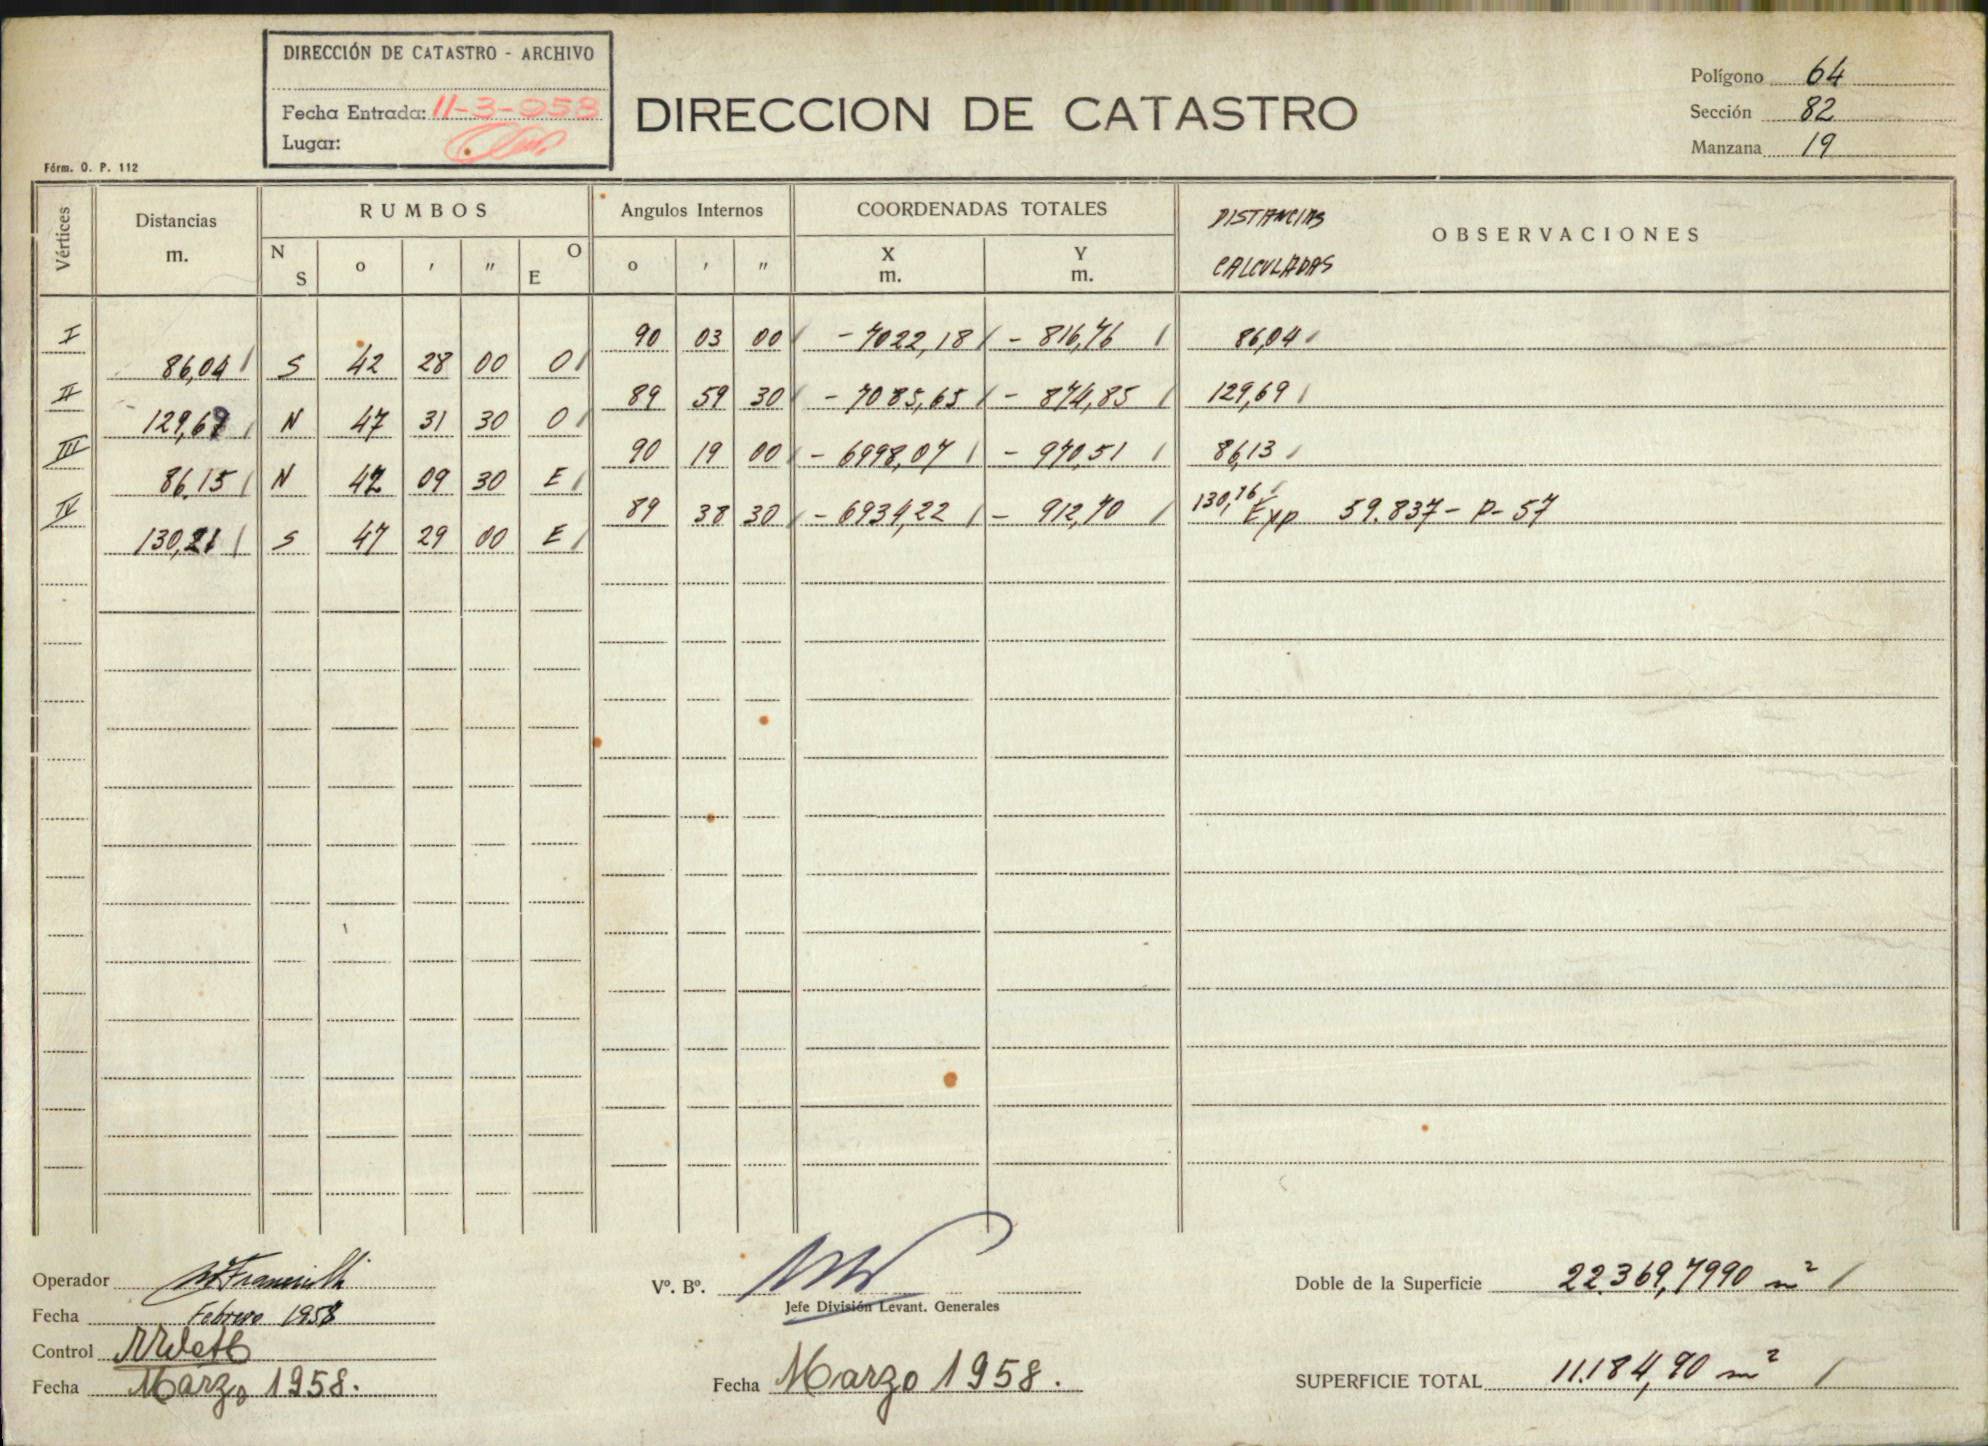 DIRECCIÓN DE CATASTRO - ARCHIVO
Fecha Entrada: 11-3-958
Lugar:
DIRECCION DE CATASTRO
Polígono 64
Sección 82
Manzana 19
Fórm. O. P. 112
Vértices Distancias m. RUMBOS Angulos Internos COORDENADAS TOTALES DISTANCIAS CALCULADAS OBSERVACIONES
N S o ' " O E o ' " X m. Y m.
I 90 03 00 - 7022,18 - 816,76 86,04
86,04 S 42 28 00 O
II 89 59 30 - 7085,65 - 874,85 129,69
129,69 N 47 31 30 O
III 90 19 00 - 6998,07 - 970,51 86,13
86,15 N 42 09 30 E
IV 89 38 30 - 6934,22 - 912,70 130,16 Exp 59.837- P- 57
130,21 S 47 29 00 E
Operador
Fecha Febrero 1958
Control
Fecha Marzo 1958.
Vº. Bº.
Jefe División Levant. Generales
Fecha Marzo 1958.
Doble de la Superficie 22.369,7990 m²
SUPERFICIE TOTAL 11.184,90 m²